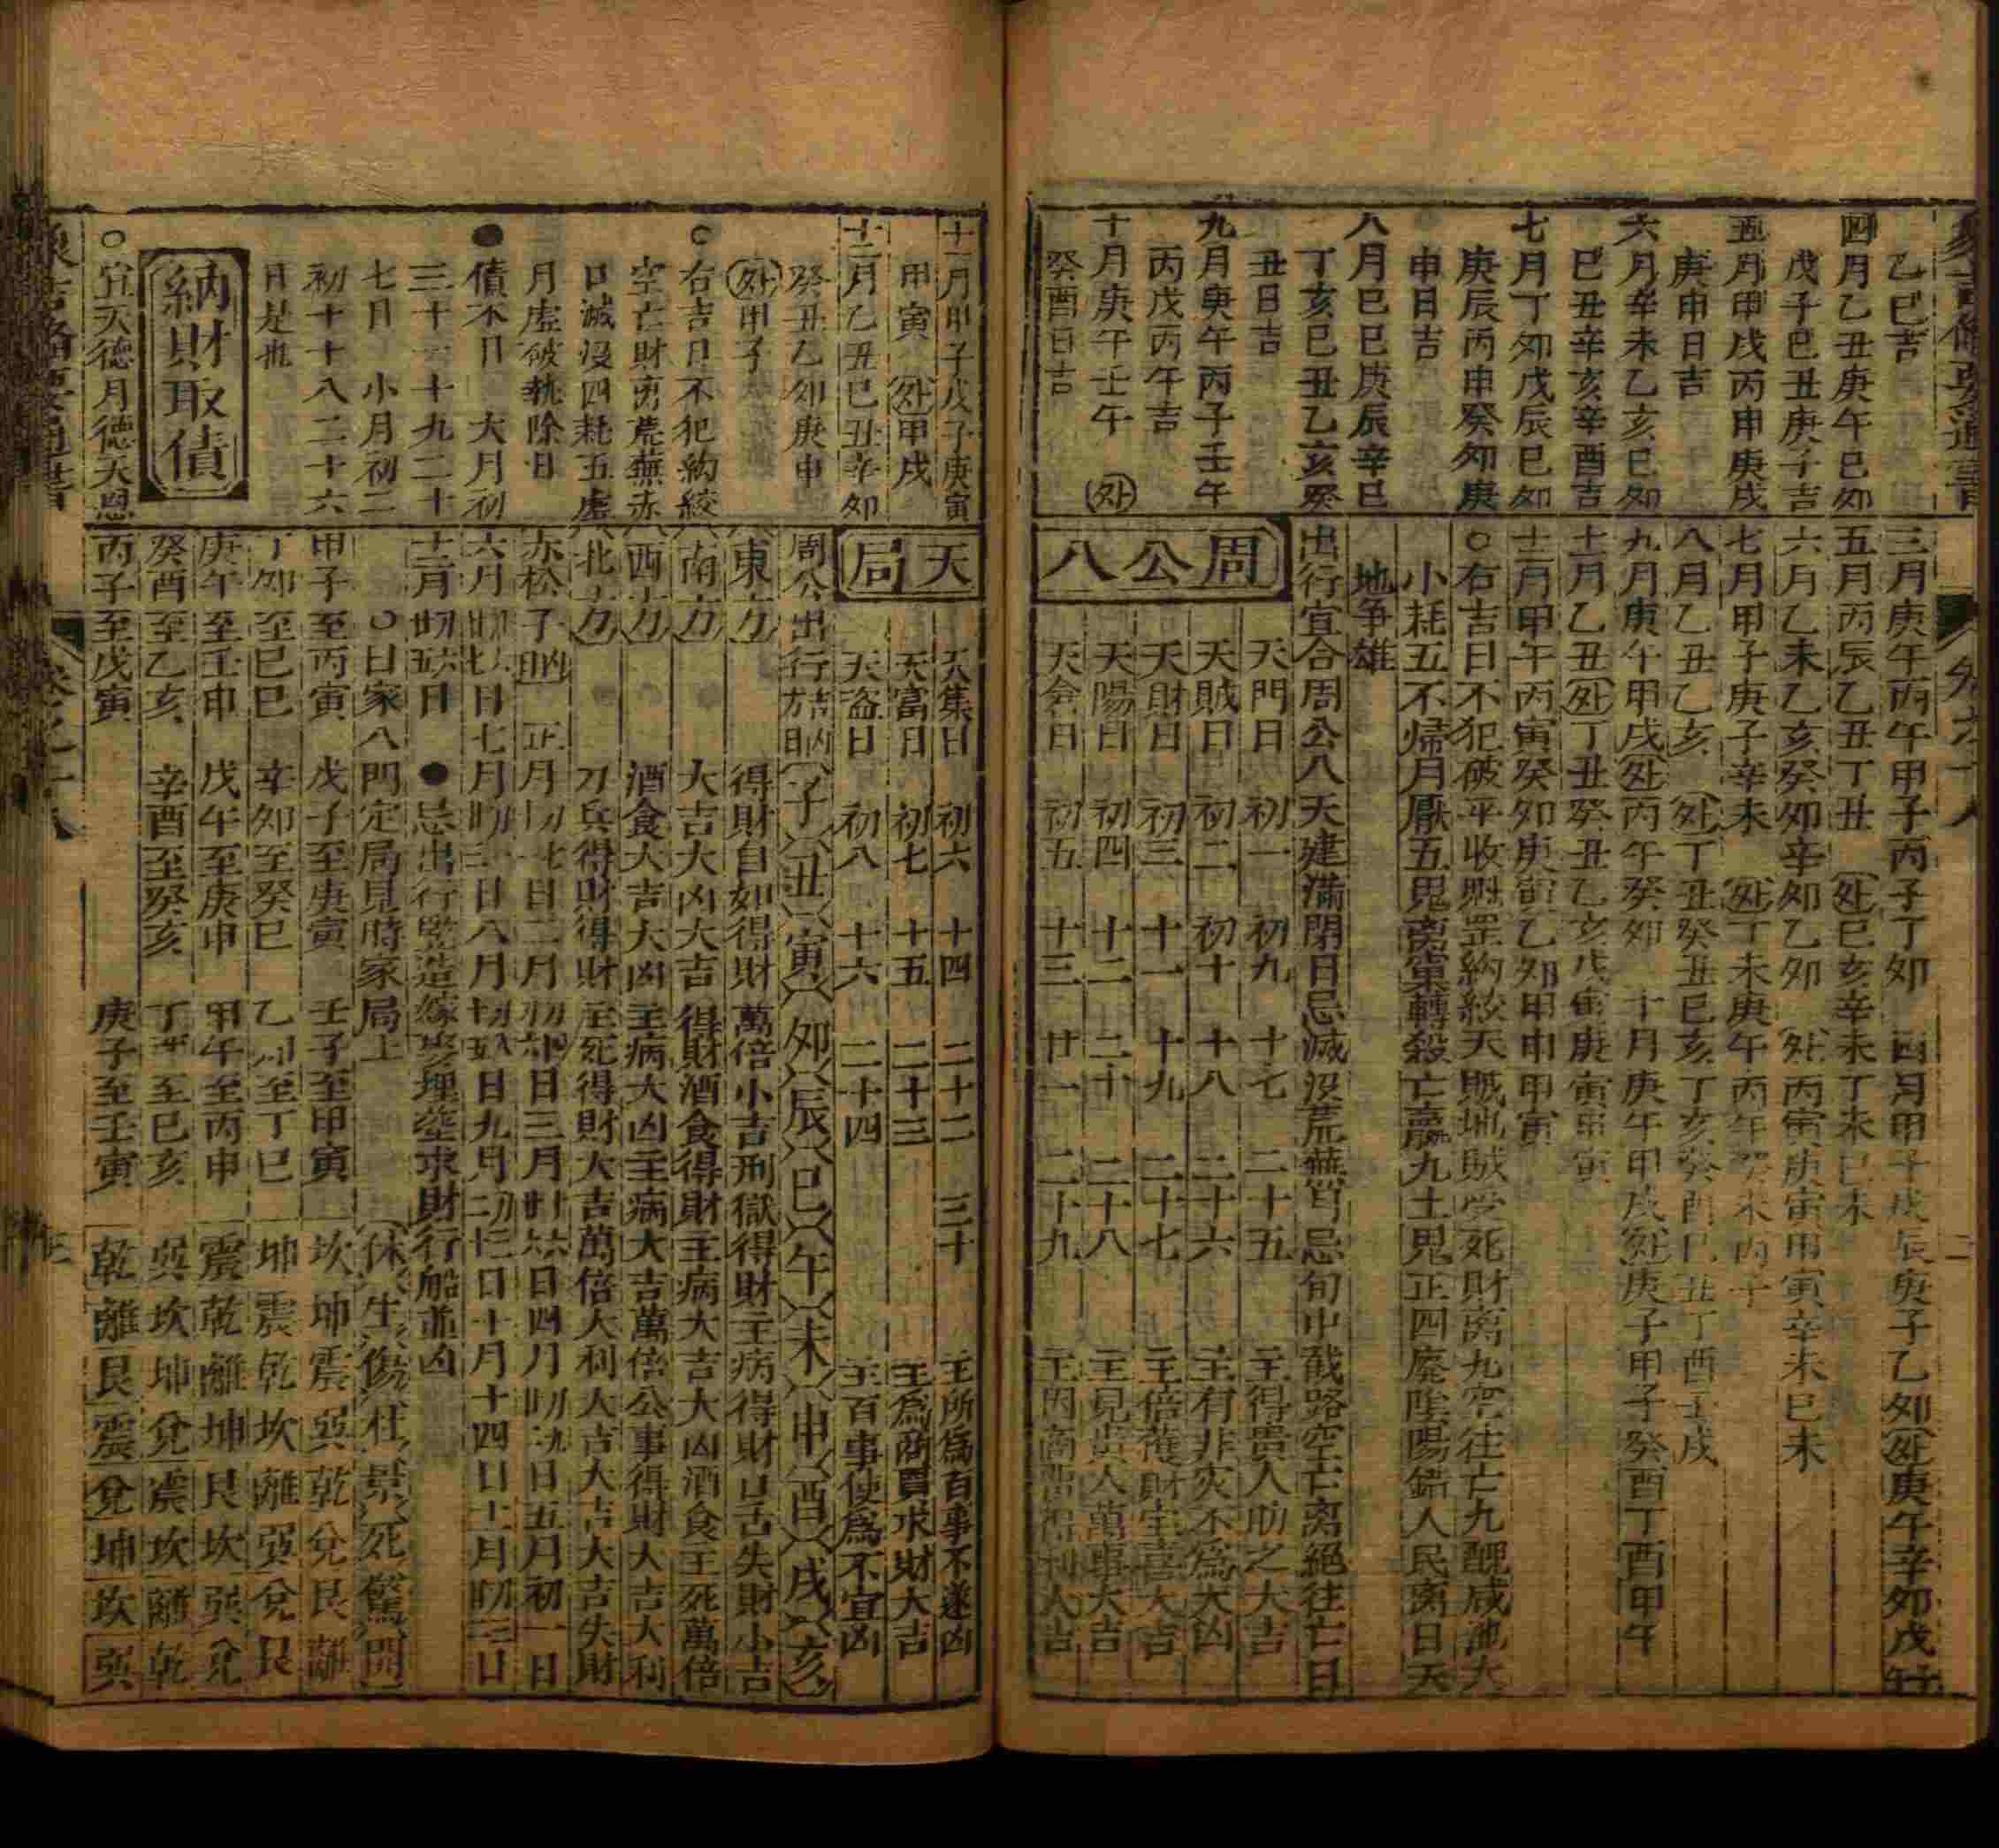 乙巳吉
四月乙丑庚午巳夘
戊子巳丑庚子吉
五月甲戌丙申庚戌
庚申日吉
六月辛未乙亥巳夘
巳丑辛亥辛酉吉
七月丁夘戊辰巳夘
庚辰丙申癸夘庚
申日吉
八月巳巳庚辰辛巳
丁亥巳丑乙亥癸
丑日吉
九月庚午丙子壬午
丙戊丙午吉
十月庚午壬午 処
癸酉日吉
三月庚午丙午甲子丙子丁夘 四月甲子戊辰庚子乙夘処庚午辛夘戊
五月丙辰乙丑丁丑 処巳亥辛未丁未巳未
六月乙未乙亥癸夘辛夘乙夘 処丙寅庚寅甲寅辛未巳未
七月甲子庚子辛未 処丁未庚午丙午癸未丙子
八月乙丑乙亥 処丁丑癸丑巳亥丁亥癸酉巳丑丁酉壬戌
九月庚午甲戌処丙午癸夘 十月庚午甲戌処庚子甲子癸酉丁酉甲午
十一月乙丑処丁丑癸丑乙亥戊寅庚寅甲寅
十二月甲午丙寅癸夘庚寅乙夘甲申甲寅
○右吉日不犯破平收魁罡絇絞天賊地賊受死財离九空往亡九醜咸池大
小耗五不歸月厭五鬼离窠轉殺亡羸九土鬼正四廢陰陽錯人民离日天
地爭雄
出行宜合周公八天建滿閉日忌滅没荒蕪𥬇忌旬中截路空亡离絕往亡日
周公八
天門日 初一 初九 十七 二十五 主得貴人助之大吉
天賊日 初二 初十 十八 二十六 主有非灾不爲大凶
天財日 初三 十一 十九 二十七 主倍獲財生喜大吉
天陽日 初四 十二 二十 二十八 主見貴人萬事大吉
天倉日 初五 十三 廿一 二十九 主因商出得利大吉
十一月甲子戊子庚寅
甲寅 処甲戌
十二月乙丑巳丑辛夘
癸丑乙夘庚申
処甲子
○右吉日不犯絇絞
空亡財离荒蕪赤
口滅没四耗五虛
月虛破執除日
●債不日 大月初
三十一十九二十
七日 小月初二
初十十八二十六
日是也
納財取債
○宜天德月德天恩
天局
天集日 初六 十四 二十二 三十 主所爲百事不遂凶
天富日 初七 十五 二十三 主爲商買求財大吉
天盗日 初八 十六 二十四 主百事使爲不宜凶
周公出行方 子 丑 寅 夘 辰 巳 午 未 申 酉 戌 亥
東方 得財自如得財萬倍小吉刑獄得財主病得財口舌失財小吉
南方 大吉大凶大吉得財酒食得財主病大吉大凶酒食主死萬倍
西方 酒食大吉大凶主病大凶主病大吉萬倍公事得財大吉大利
北方 刀兵得財得財主死得財大吉萬倍大利大吉大吉大吉失財
赤松子 正月初七日二月初四日三月廿六日四月初九日五月初一日
六月 日七月初三日八月 日九月初二日十月十四日十一月初三日
十二月 日 ●忌出行竪造嫁娶埋塟求財行船並凶
○日家八門定局見時家局上 休 生 傷 杜 景 死 驚 開
甲子至丙寅 戊子至庚寅 壬子至甲寅 坎 坤 震 巽 乾 兌 艮 離
丁夘至巳巳 辛夘至癸巳 乙夘至丁巳 坤 震 乾 坎 離 巽 兌 艮
庚午至壬申 戊午至庚申 甲午至丙申 震 乾 離 坤 艮 坎 巽 兌
癸酉至乙亥 辛酉至癸亥 丁酉至巳亥 巽 坎 坤 兌 震 坎 離 乾
丙子至戊寅 庚子至壬寅 乾 離 艮 震 兌 坤 坎 巽